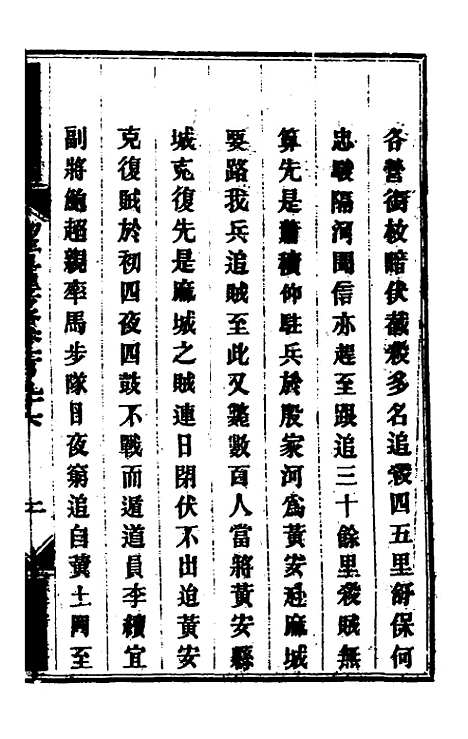 各營銜枚暗伏截殺多名追殺四五里舒保何
忠駿隔河聞信亦趕至跟追三十餘里殺賊無
算先是蕭積仰駐兵於殷家河為黃安通麻城
要路我兵追賊至此又斃數百人當將黃安縣
城克復先是麻城之賊連日閉伏不出迨黃安
克復賊於初四夜四鼓不戰而遁道員李續宜
副將鮑超親率馬步隊日夜窮追自黃土岡至
二